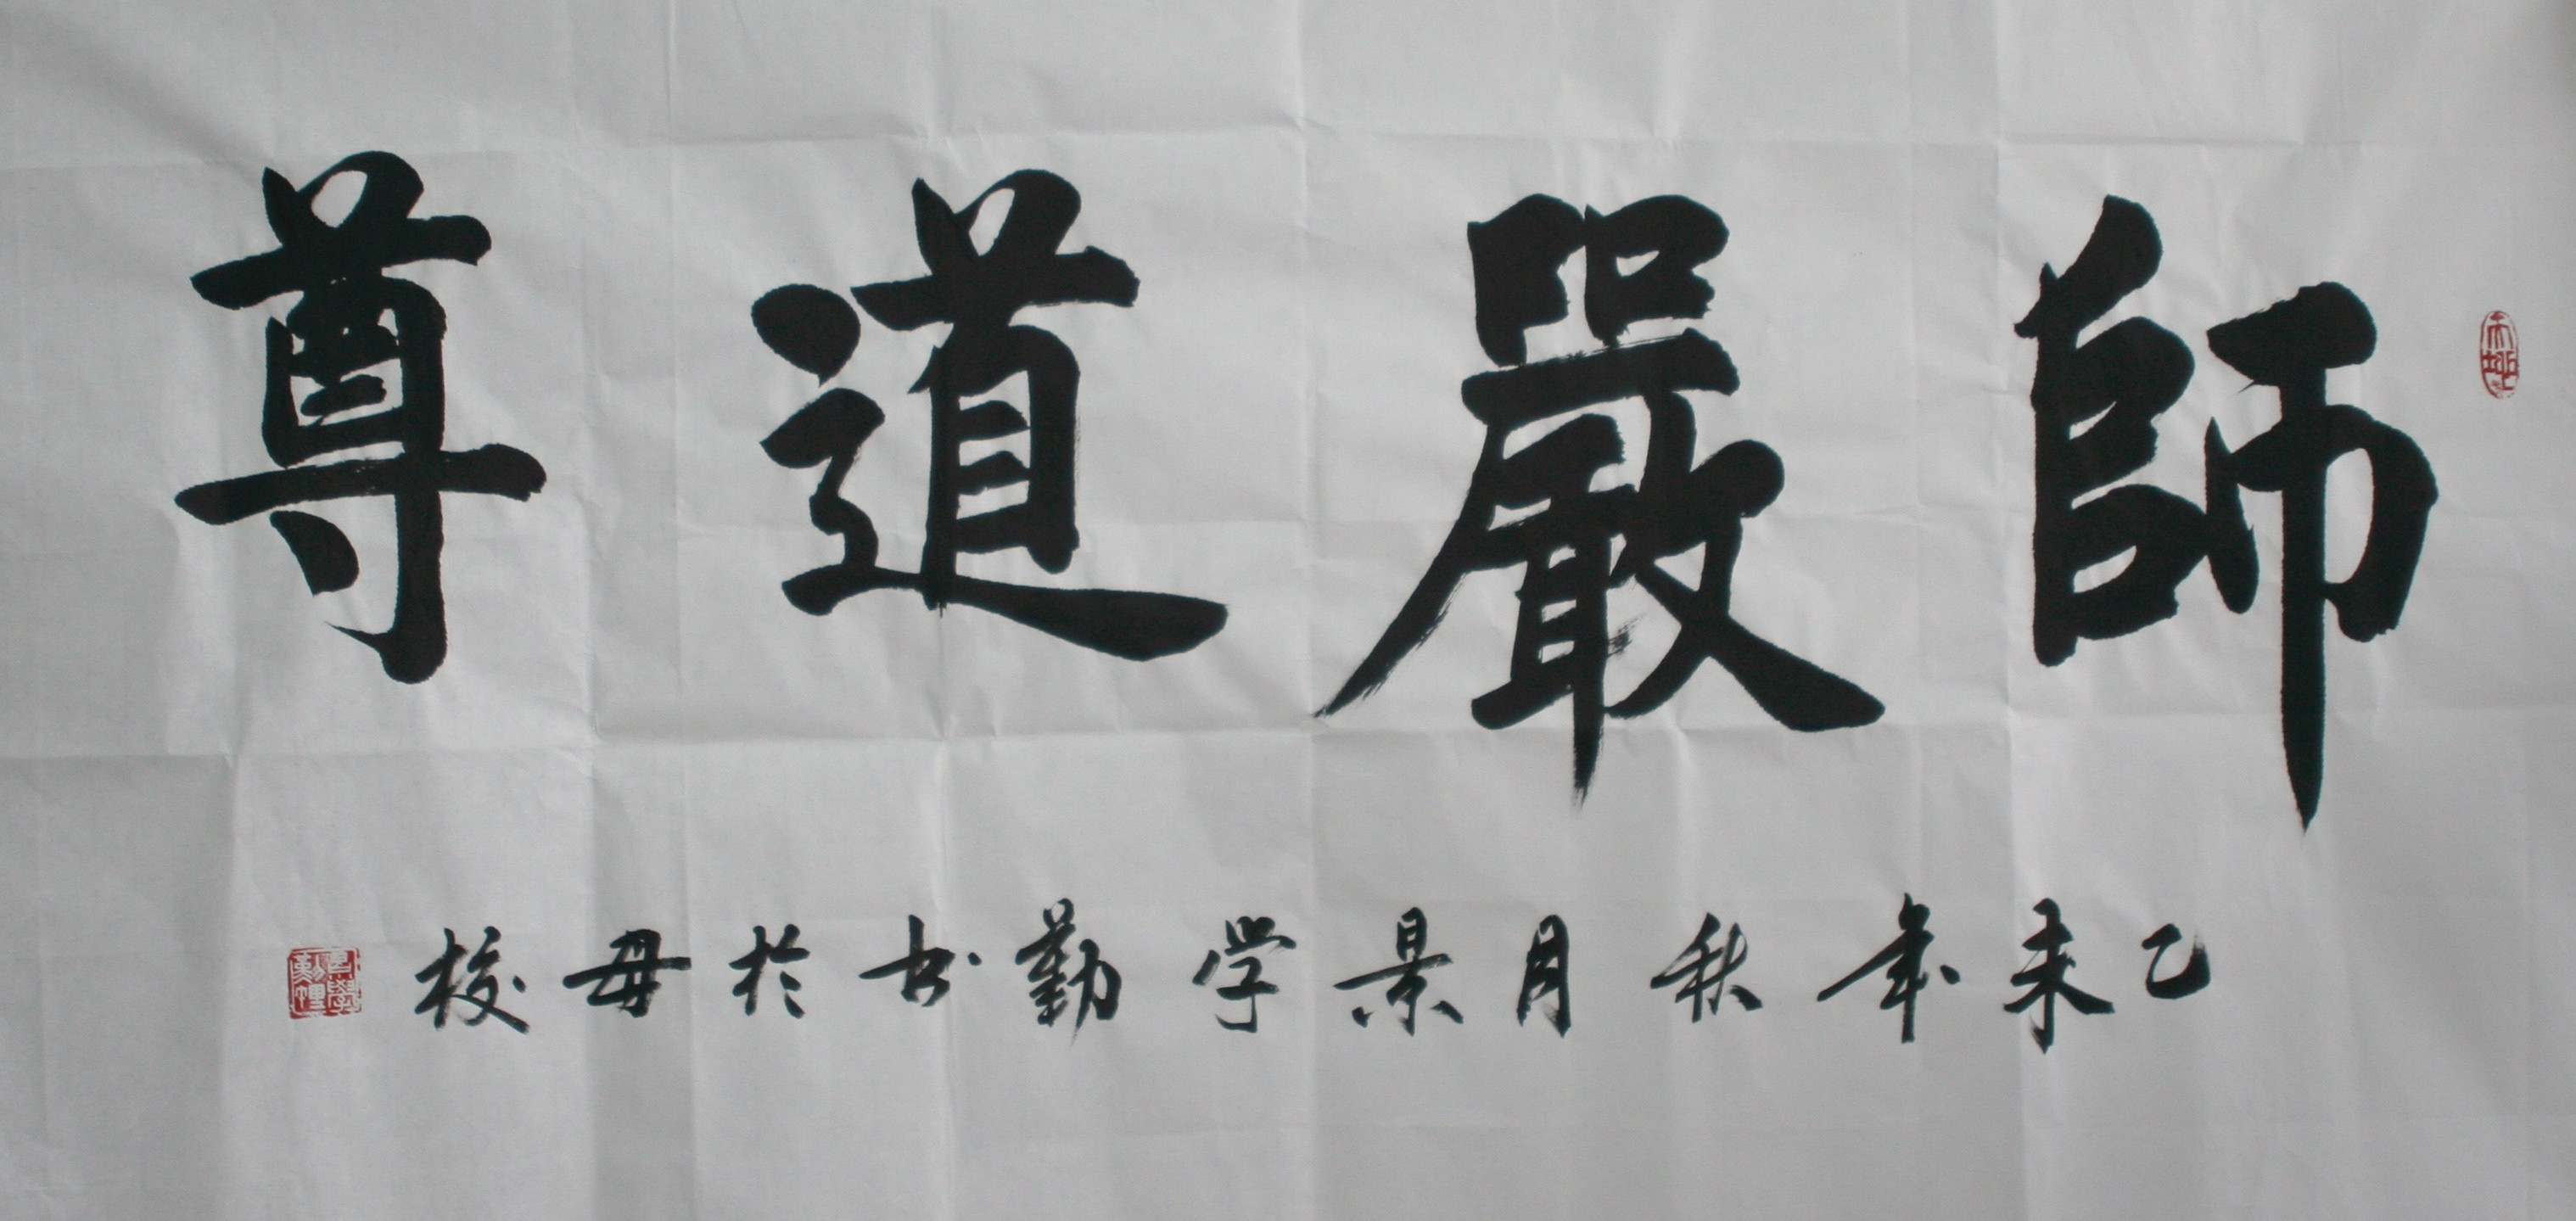 師嚴道尊
乙未年秋月景学勤书於母校